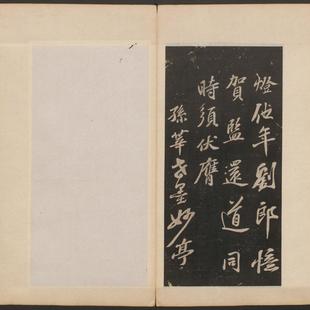 燈佔年劉郎恠
賀監還道同
時須伏膺
孫華老墨妙亭